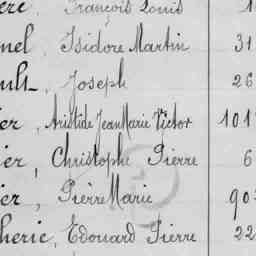 ère, François Louis 1
nel, Isidore Martin 31
ult, Joseph 26
ier, Aristide Jean Marie Victor 101
ier, Christophe Pierre 6
ier, Pierre Marie 90
cherie, Edouard Pierre 22